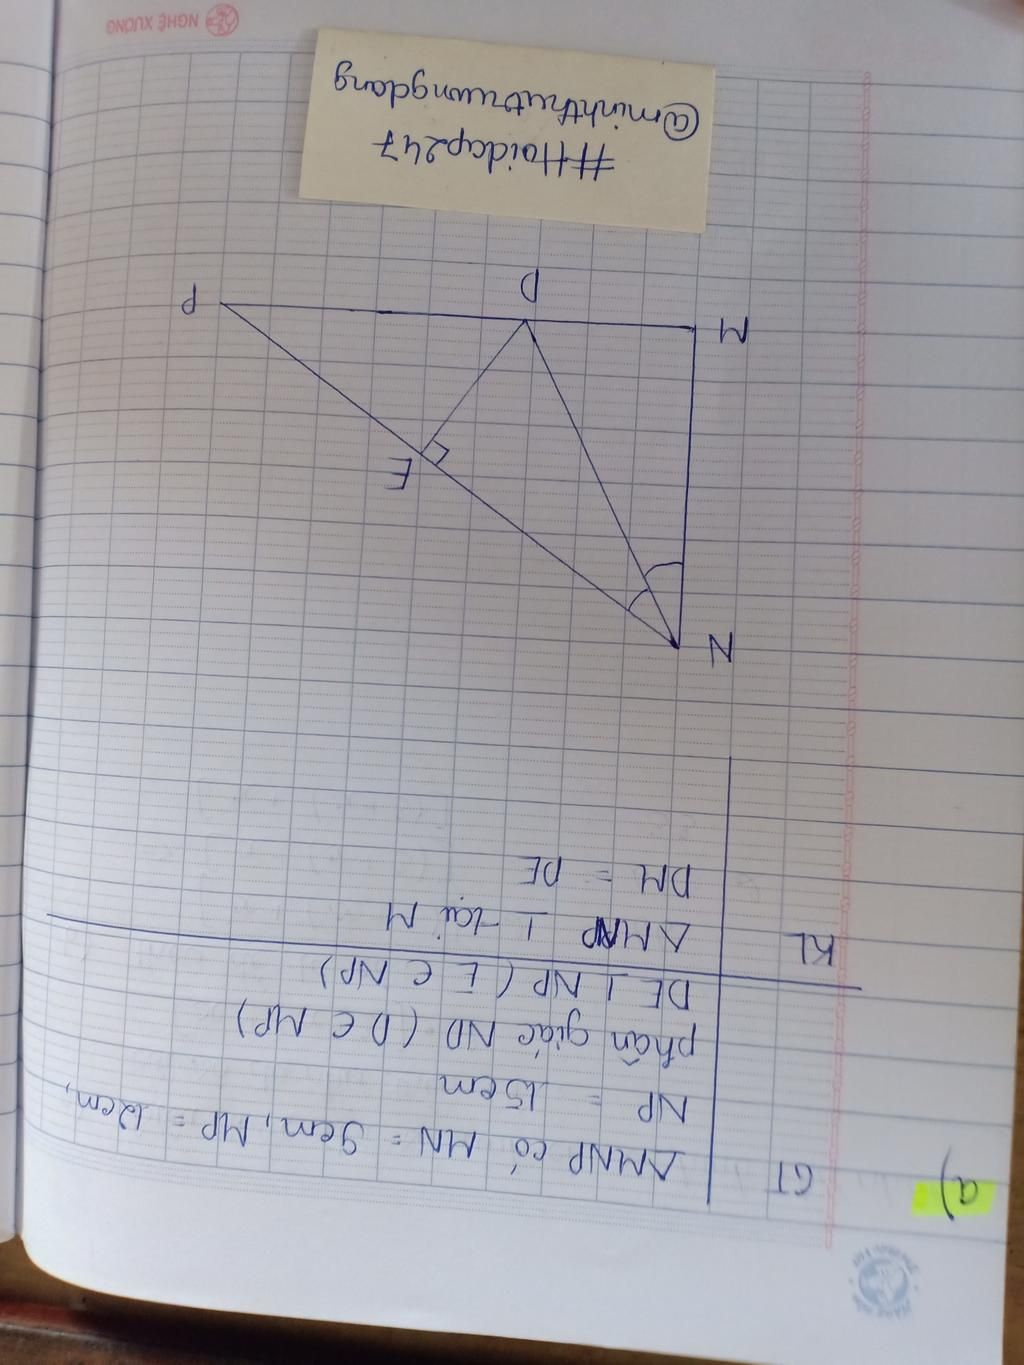 a)
GT
ΔMNP có MN = 9cm, MP = 12cm,
NP = 15cm
phân giác ND (D ∈ MP)
DE ⊥ NP (E ∈ NP)
KL
ΔMNP ⊥ tại M
DM = DE
N
E
M
D
P
#Hoidap247
@minhthutruongdang
NGHỆ XƯƠNG